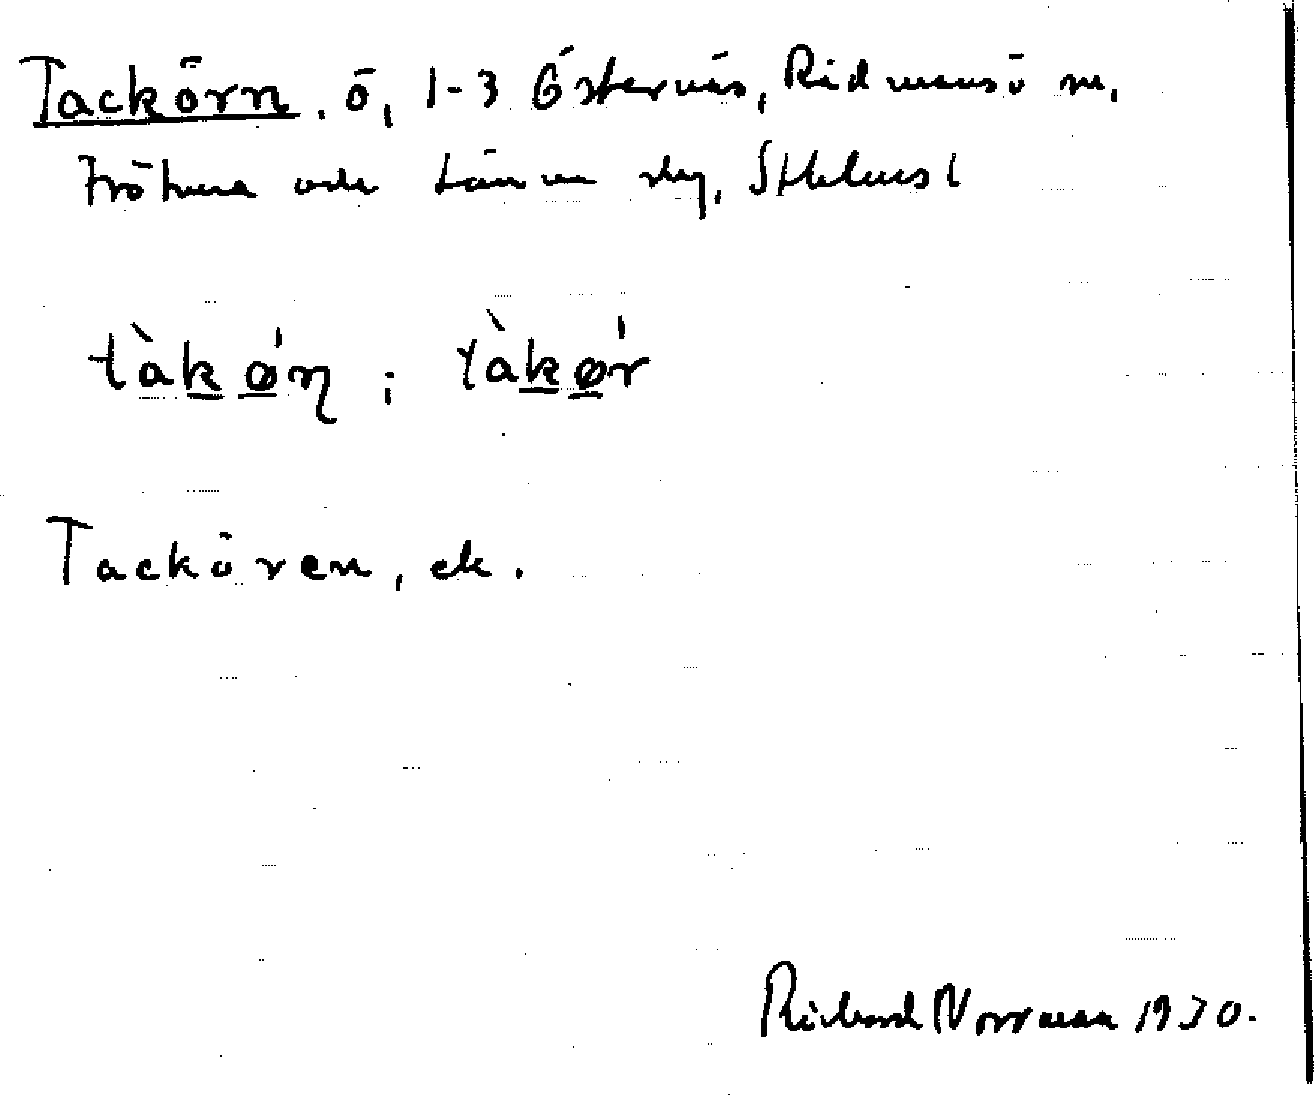 Tackörn, ö, 1-3 Östernäs, Rådmansö sn,
Frötuna och Länna skg, Sthlms l
tàkǿɳ ; tàkǿr
Tackören, ek.
Richard Norrman 1930.